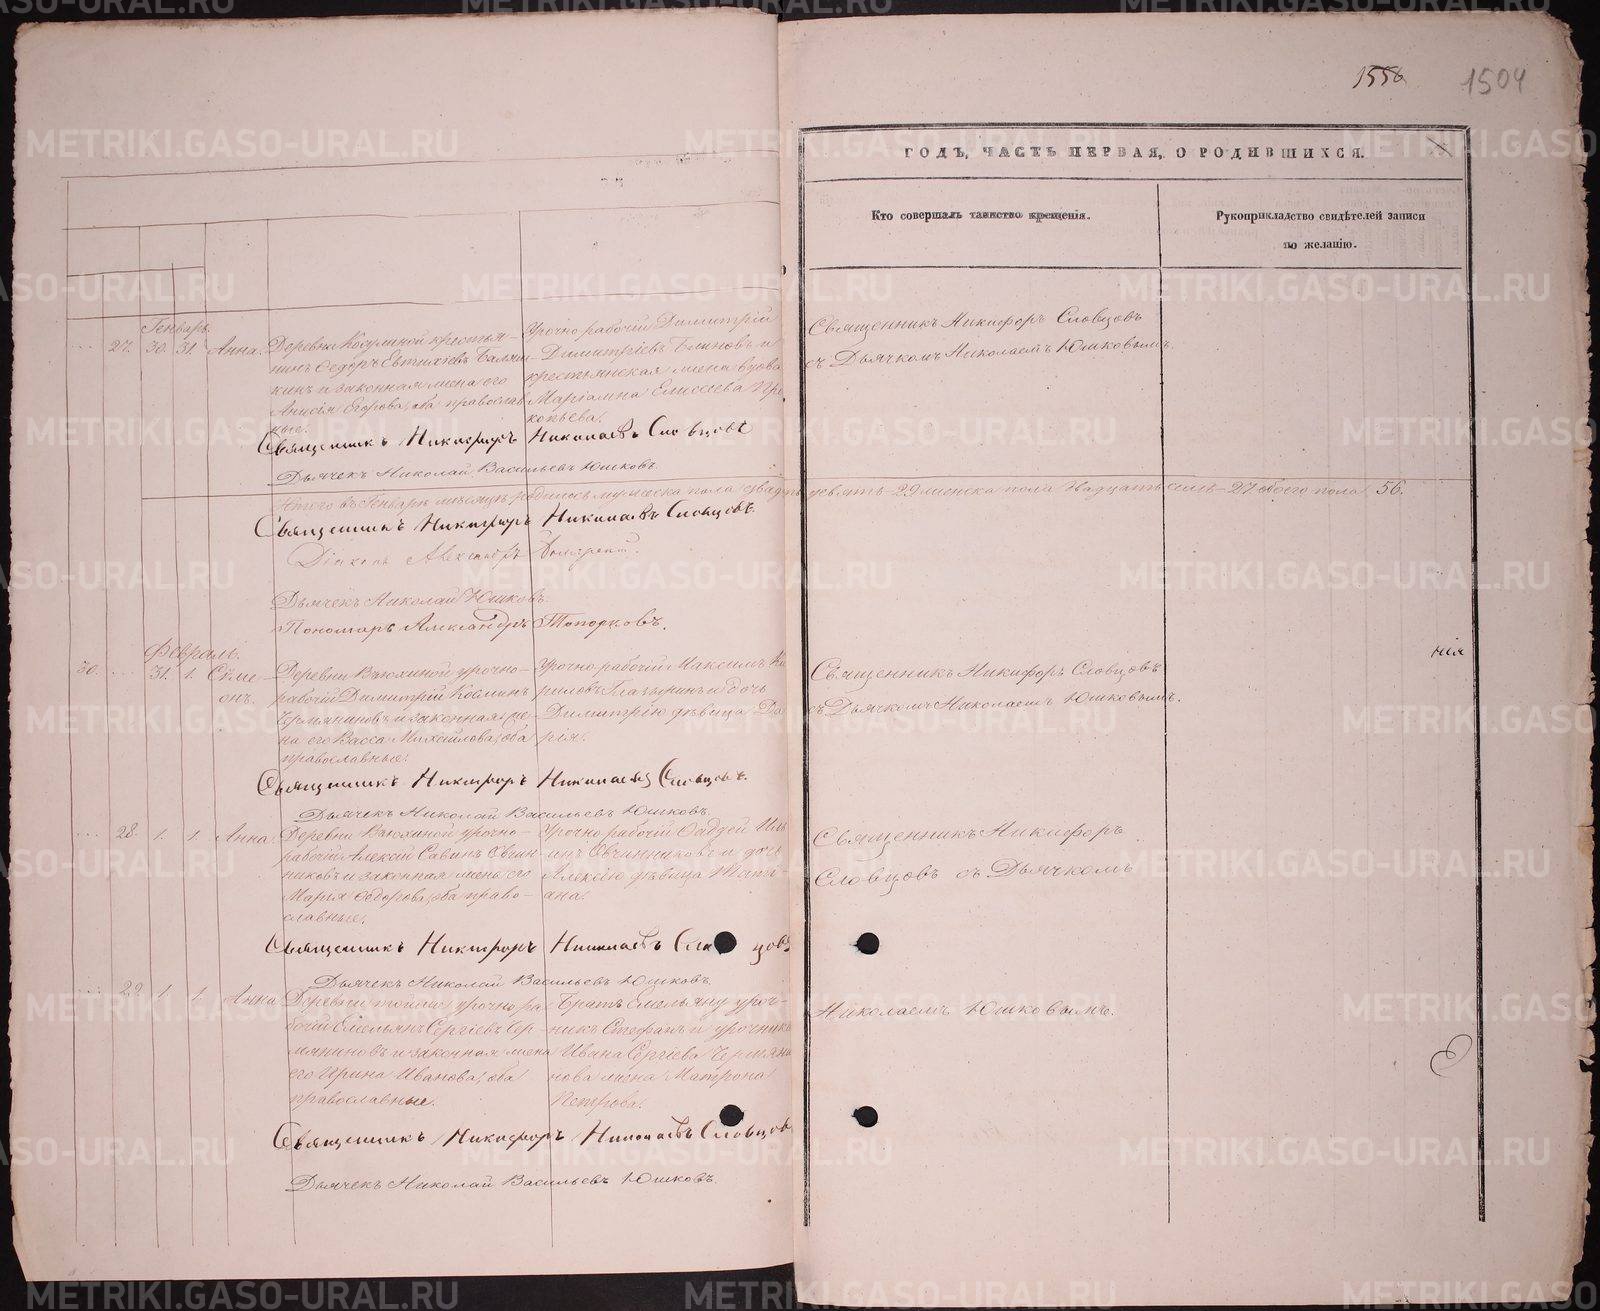 1556 1504
ГОДЪ, ЧАСТЬ ПЕРВАЯ, О РОДИВШИХСЯ.
Кто совершалъ таинство крещенія.
Рукоприкладство свидѣтелей записи
по желанію.
Генварь.
27. 30. 31. Анна.
Деревни Косулиной крестья-
нинъ Ѳедоръ Евтихіевъ
кинъ и законная жена его
Анисія Егорова, оба православ
ные.
Урочно рабочій Димитрій
Димитріевъ Блиновъ и
крестьянская жена вдова
Маріамна Елисеева Про
копьева.
Священникъ Никифоръ Словцовъ
съ Дьячкомъ Николаемъ Юшковымъ.
Священникъ Никифоръ Николаевъ Словцовъ
Дьячекъ Николай Васильевъ Юшковъ.
Итого въ Генварѣ мѣсяцѣ родилось мужеска пола двадцать девять 29 женска пола двадцать семь 27 обоего пола 56.
Священникъ Никифоръ Николаевъ Словцовъ.
Діаконъ Александръ
Дьячекъ Николай Юшковъ.
Пономарь Александръ Топорковъ.
Февраль.
30. 31. 1. Сѵме-
онъ.
Деревни Вьюхиной урочно-
рабочій Димитрій Косминъ
Чермяниновъ и законная же-
на его Васса Михайлова, оба
православные.
Урочно рабочій Максимъ Ки
риловъ Глазыринъ и дочь
Димитрію дѣвица Да
рья.
Священникъ Никифоръ Словцовъ
съ Дьячкомъ Николаемъ Юшковымъ.
нія
Священникъ Никифоръ Николаевъ Словцовъ.
Дьячекъ Николай Васильевъ Юшковъ.
28. 1. 1. Анна
Деревни Вьюхиной урочно-
рабочій Алексій Савинъ Овчин-
никовъ и законная жена его
Марія Ѳедорова, оба право-
славные.
Урочно рабочій Ѳаддей Иль
инъ Овчинниковъ и дочь
Алексію дѣвица Тать-
ана.
Священникъ Никифоръ
Словцовъ съ Дьячкомъ
Священникъ Никифоръ Николаевъ Словцовъ
Дьячекъ Николай Васильевъ Юшковъ.
29. 1. 1. Анна
Деревни тойже урочно ра
бочій Емельянъ Сергіевъ Чер-
мяниновъ и законная жена
его Ирина Иванова, оба
православные.
Братъ Емельяну уроч-
никъ Стефанъ и урочника
Ивана Сергіева Чермяни
нова жена Матрона
Петрова.
Николаемъ Юшковымъ.
Священникъ Никифоръ Николаевъ Словцовъ
Дьячекъ Николай Васильевъ Юшковъ.
METRIKI.GASO-URAL.RU